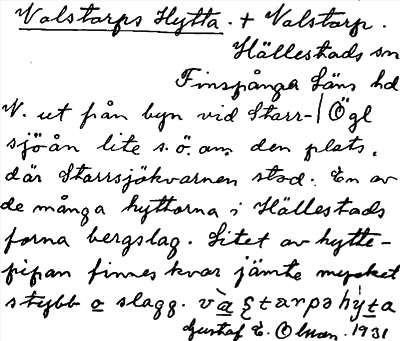 Valstorps Hytta. + Valstorp.
Hällestads sn
Finspånga Läns hd
V. ut från byn vid Starr- Ögl
sjöån lite s.ö. om den plats,
där Starrsjökvarnen stod. En av
de många hyttorna i Hällestads
forna bergslag. Litet av hytte-
pipan finnes kvar jämte mycket
stybb o slagg.
Gustaf E. Olson. 1931